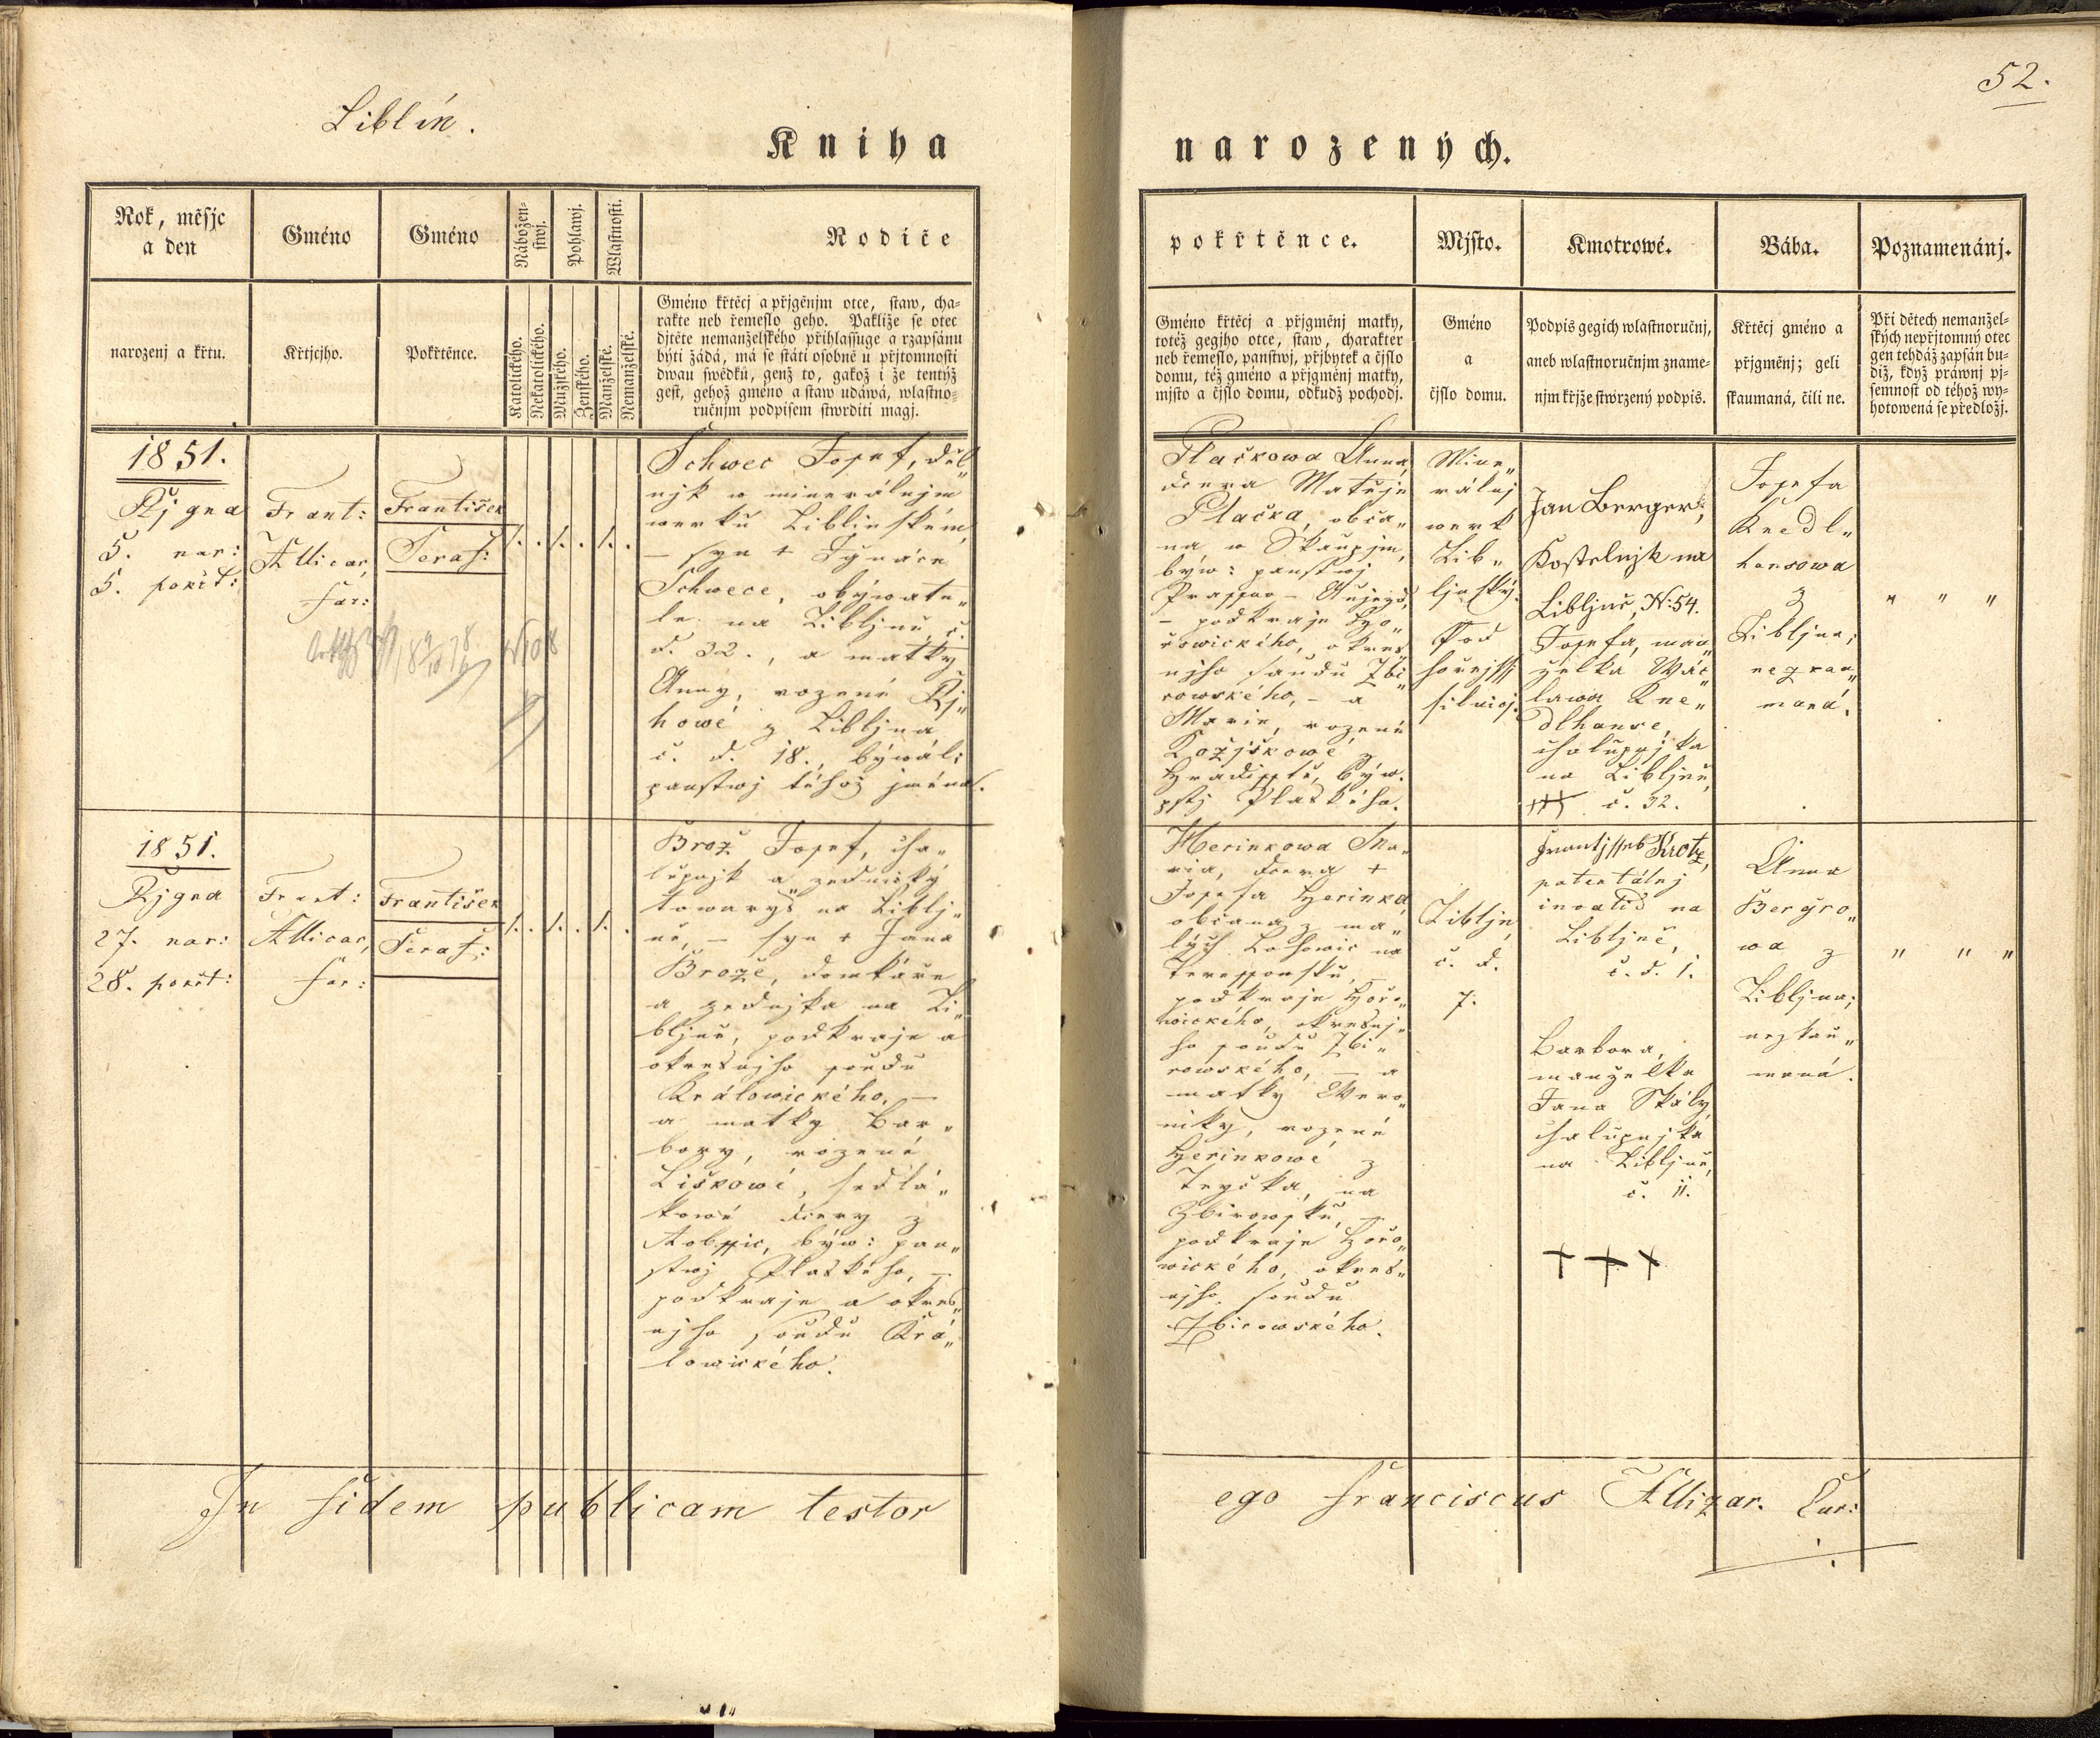 52.
Liblín.
Kniha narozených.
Rok, měsjc
a den
narozenj a křtu.
Gméno
Křtjcjho.
Gméno
Pokřtěnce.
Nábožen-
stwj.
Katolického.
Nekatolického.
Pohlawj.
Mužského.
Ženského.
Wlastnosti.
Manželské.
Nemanželské.
Rodiče
Gméno křtěcj a přjgěnjm otce, staw, cha-
rakte neb řemeslo geho. Pakliže se otec
djtěte nemanželského přihlassuge a rzapsánu
býti žádá, má se státi osobně u přjtomnosti
dwau swědků, genž to, gakož i že tentýž
gest, gehož gméno a staw udáwá, wlastno-
ručnjm podpisem stwrditi magj.
pokřtěnce.
Gméno křtěcj a přjgměnj matky,
totéž gegjho otce, staw, charakter
neb řemeslo, panstwj, přjbytek a čjslo
domu, též gméno a přjgměnj matky,
mjsto a čjslo domu, odkudž pochodj.
Mjsto.
Gméno
a
čjslo domu.
Kmotrowé.
Podpis gegich wlastnoručnj,
aneb wlastnoručnjm zname-
njm křjže stwrzený podpis.
Bába.
Křtěcj gméno a
přjgměnj; geli
skaumaná, čili ne.
Poznamenánj.
Při dětech nemanžel-
ských nepřjtomný otec
gen tehdáž zapsán bu-
diž, když práwnj pj-
semnost od téhož wy-
hotowená se předložj.
1851.
Řjgna
5. nar:
5. pokřt:
Frant:
Allicar,
far:
František
Seraf:
1. . 1. . 1. .
Schwec Josef, děl„
njk w minerálnjm
werku Liblinském,
– syn + Ignáce
Schwece, obýwate„
le na Libljně, č.
d. 32., a matky
Anny, rozené Řj„
howé z Libljna
č. d. 18., býwál:
panstwj téhož jména.
Plačkowa Anna,
dcera Matěje
Plačka, obča„
na w Skaupjm,
býw: panstwj
– podkraje Ho„
řowického, okres„
njho saudu Zbi„
rowského, – a
Marie, rozené
Kožjškowé z
Hradisstě, býw.
pstj Plaského.
Mine„
rálnj
werk
Lib„
ljnský.
Pod
hořejssj
silnicj.
Jan Berger,
Kostelnjk na
Libljně, N: 54.
Josefa, man„
želka Wác„
lawa Kne„
dlhanse,
chalupnjka
na Libljně
+++ č. 32.
Josefa
Knedl„
hansowa
z
Libljna;
nezkau„
maná.
„ „ „
1851.
Řjgna
27. nar:
28. pokřt:
Frant:
Allicar,
far:
František
Seraf:
1. . 1. . 1. .
Brož Josef, cha„
lupnjk a zednický
towaryš na Liblj„
ně, – syn + Jana
Brože, domkáře
a zednjka na Li„
bljně, podkraje a
okresnjho soudu
Králowického, –
a matky Bar„
bory, rozené
Liškowé, sedlá„
kowé dcery z
Robssic, býw: pan„
stwj Plaského, –
podkraje a okres„
njho soudu Krá„
lowického.
Herinkowa Ma„
ria, dcera +
Josefa Herinka,
občana z ma„
lých Lohowic na
Teressowsku, –
podkraje Hořo„
wického, okresnj„
ho soudu Zbi„
rowského, – a
matky Wero„
niky, rozené
Herinkowé z
Teyčka, na
Zbirowsku, –
podkraje Hořo„
wického, okres„
njho soudu
Zbirowského.
Libljn
č. d.
7.
Frantjssek Krotz,
patentálnj
invalid na
Libljně,
č. d. 1.
Barbora,
manželka
Jana Skály,
chalupnjka
na Libljně,
č. 11.
+++
Anna
Bergro„
wa z
Libljna;
nezkau„
maná.
„ „ „
In fidem publicam testor ego Franciscus Allizar. Cur: